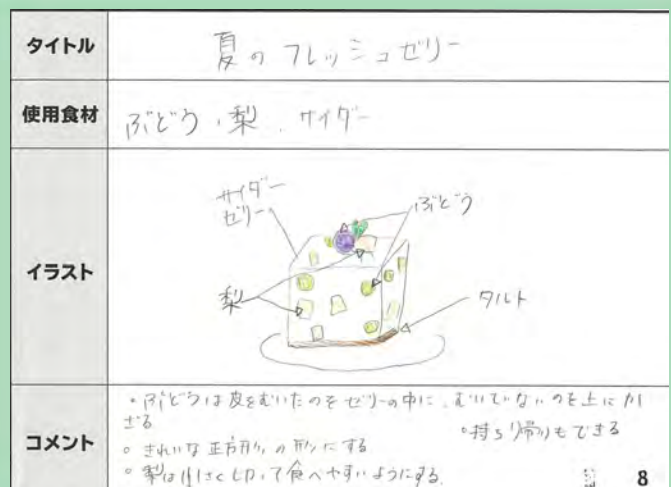 タイトル
夏のフレッシュゼリー
使用食材
ぶどう、梨、サイダー
イラスト
サイダー
ゼリー
ぶどう
梨
タルト
コメント
・ぶどうは皮をむいたのをゼリーの中に、むいていないのを上にか
ざる
・持ち帰りもできる
・きれいな正方形の形にする
・梨は小さく切って食べやすいようにする。
8